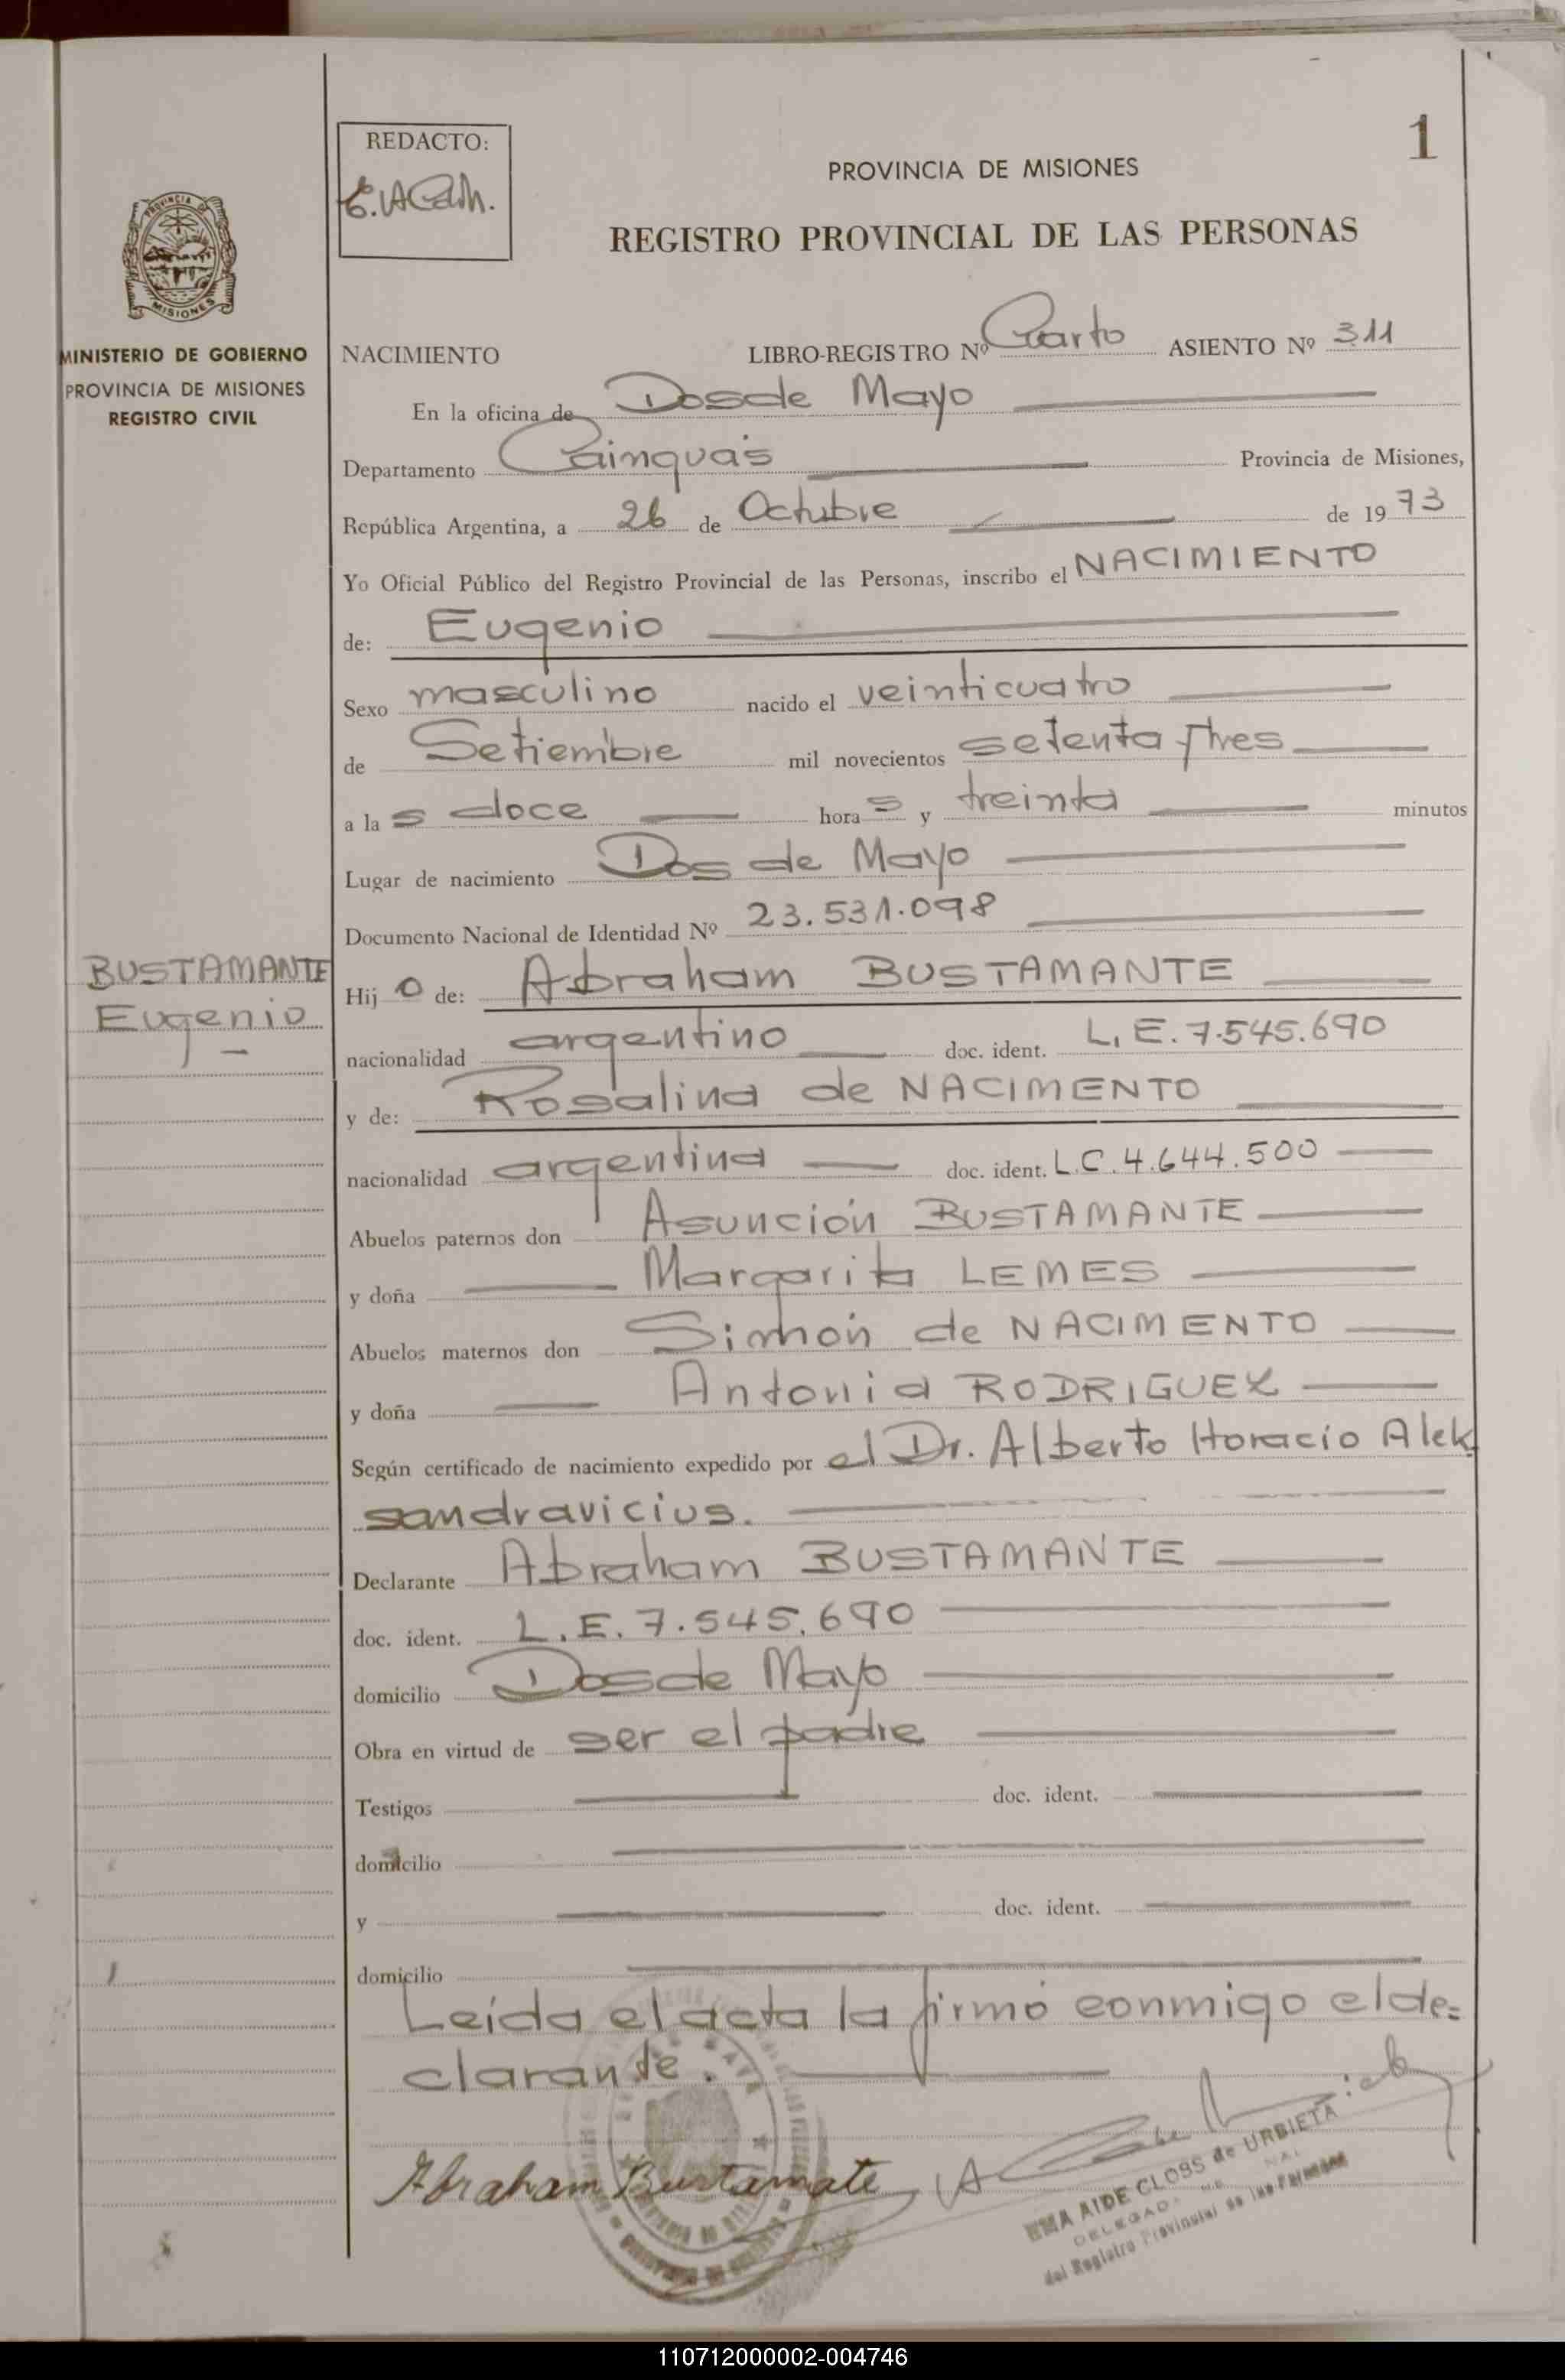 1
REDACTO:
PROVINCIA DE MISIONES
REGISTRO PROVINCIAL DE LAS PERSONAS
PROVINCIA DE
MISIONES
MINISTERIO DE GOBIERNO
PROVINCIA DE MISIONES
REGISTRO CIVIL
NACIMIENTO LIBRO-REGISTRO Nº Cuarto ASIENTO Nº 311
En la oficina de Dos de Mayo
Departamento Cainguás Provincia de Misiones,
República Argentina, a 26 de Octubre de 1973
Yo Oficial Público del Registro Provincial de las Personas, inscribo el NACIMIENTO
de: Eugenio
Sexo masculino nacido el veinticuatro
de Setiembre mil novecientos setenta y tres
a las doce horas y treinta minutos
Lugar de nacimiento Dos de Mayo
Documento Nacional de Identidad Nº 23.531.098
BUSTAMANTE
Eugenio
Hijo de: Abraham BUSTAMANTE
nacionalidad argentino doc. ident. L.E. 7.545.690
y de: Rosalina de NACIMENTO
nacionalidad argentina doc. ident. L.C. 4.644.500
Abuelos paternos don Asunción BUSTAMANTE
y doña Margarita LEMES
Abuelos maternos don Simón de NACIMENTO
y doña Antonia RODRIGUEZ
Según certificado de nacimiento expedido por el Dr. Alberto Horacio Alek
sandravicius.
Declarante Abraham BUSTAMANTE
doc. ident. L.E. 7.545.690
domicilio Dos de Mayo
Obra en virtud de ser el padre
Testigos doc. ident.
domicilio
y doc. ident.
domicilio
Leída el acta la firmó conmigo el de=
clarante.
Abraham Bustamate
AIDE CLOSS de URBIETA
del Registro Provincial de las Personas
110712000002-004746